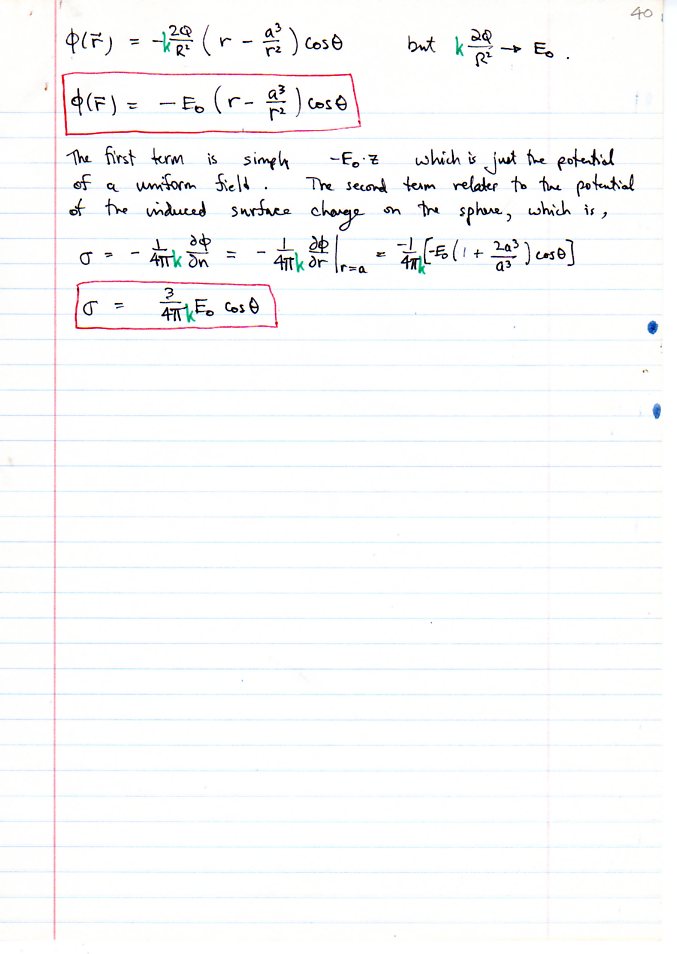 40
ϕ(r⃗) = -k 2Q/R² ( r - a³/r² ) cosθ but k 2Q/R² → E₀ .
ϕ(r⃗) = - E₀ ( r - a³/r² ) cosθ
The first term is simply -E₀·z which is just the potential
of a uniform field. The second term relates to the potential
of the induced surface charge on the sphere, which is,
σ = - 1/4πk ∂ϕ/∂n = - 1/4πk ∂ϕ/∂r |r=a = -1/4πk [-E₀ ( 1 + 2a³/a³ ) cosθ]
σ = 3/4πk E₀ cosθ